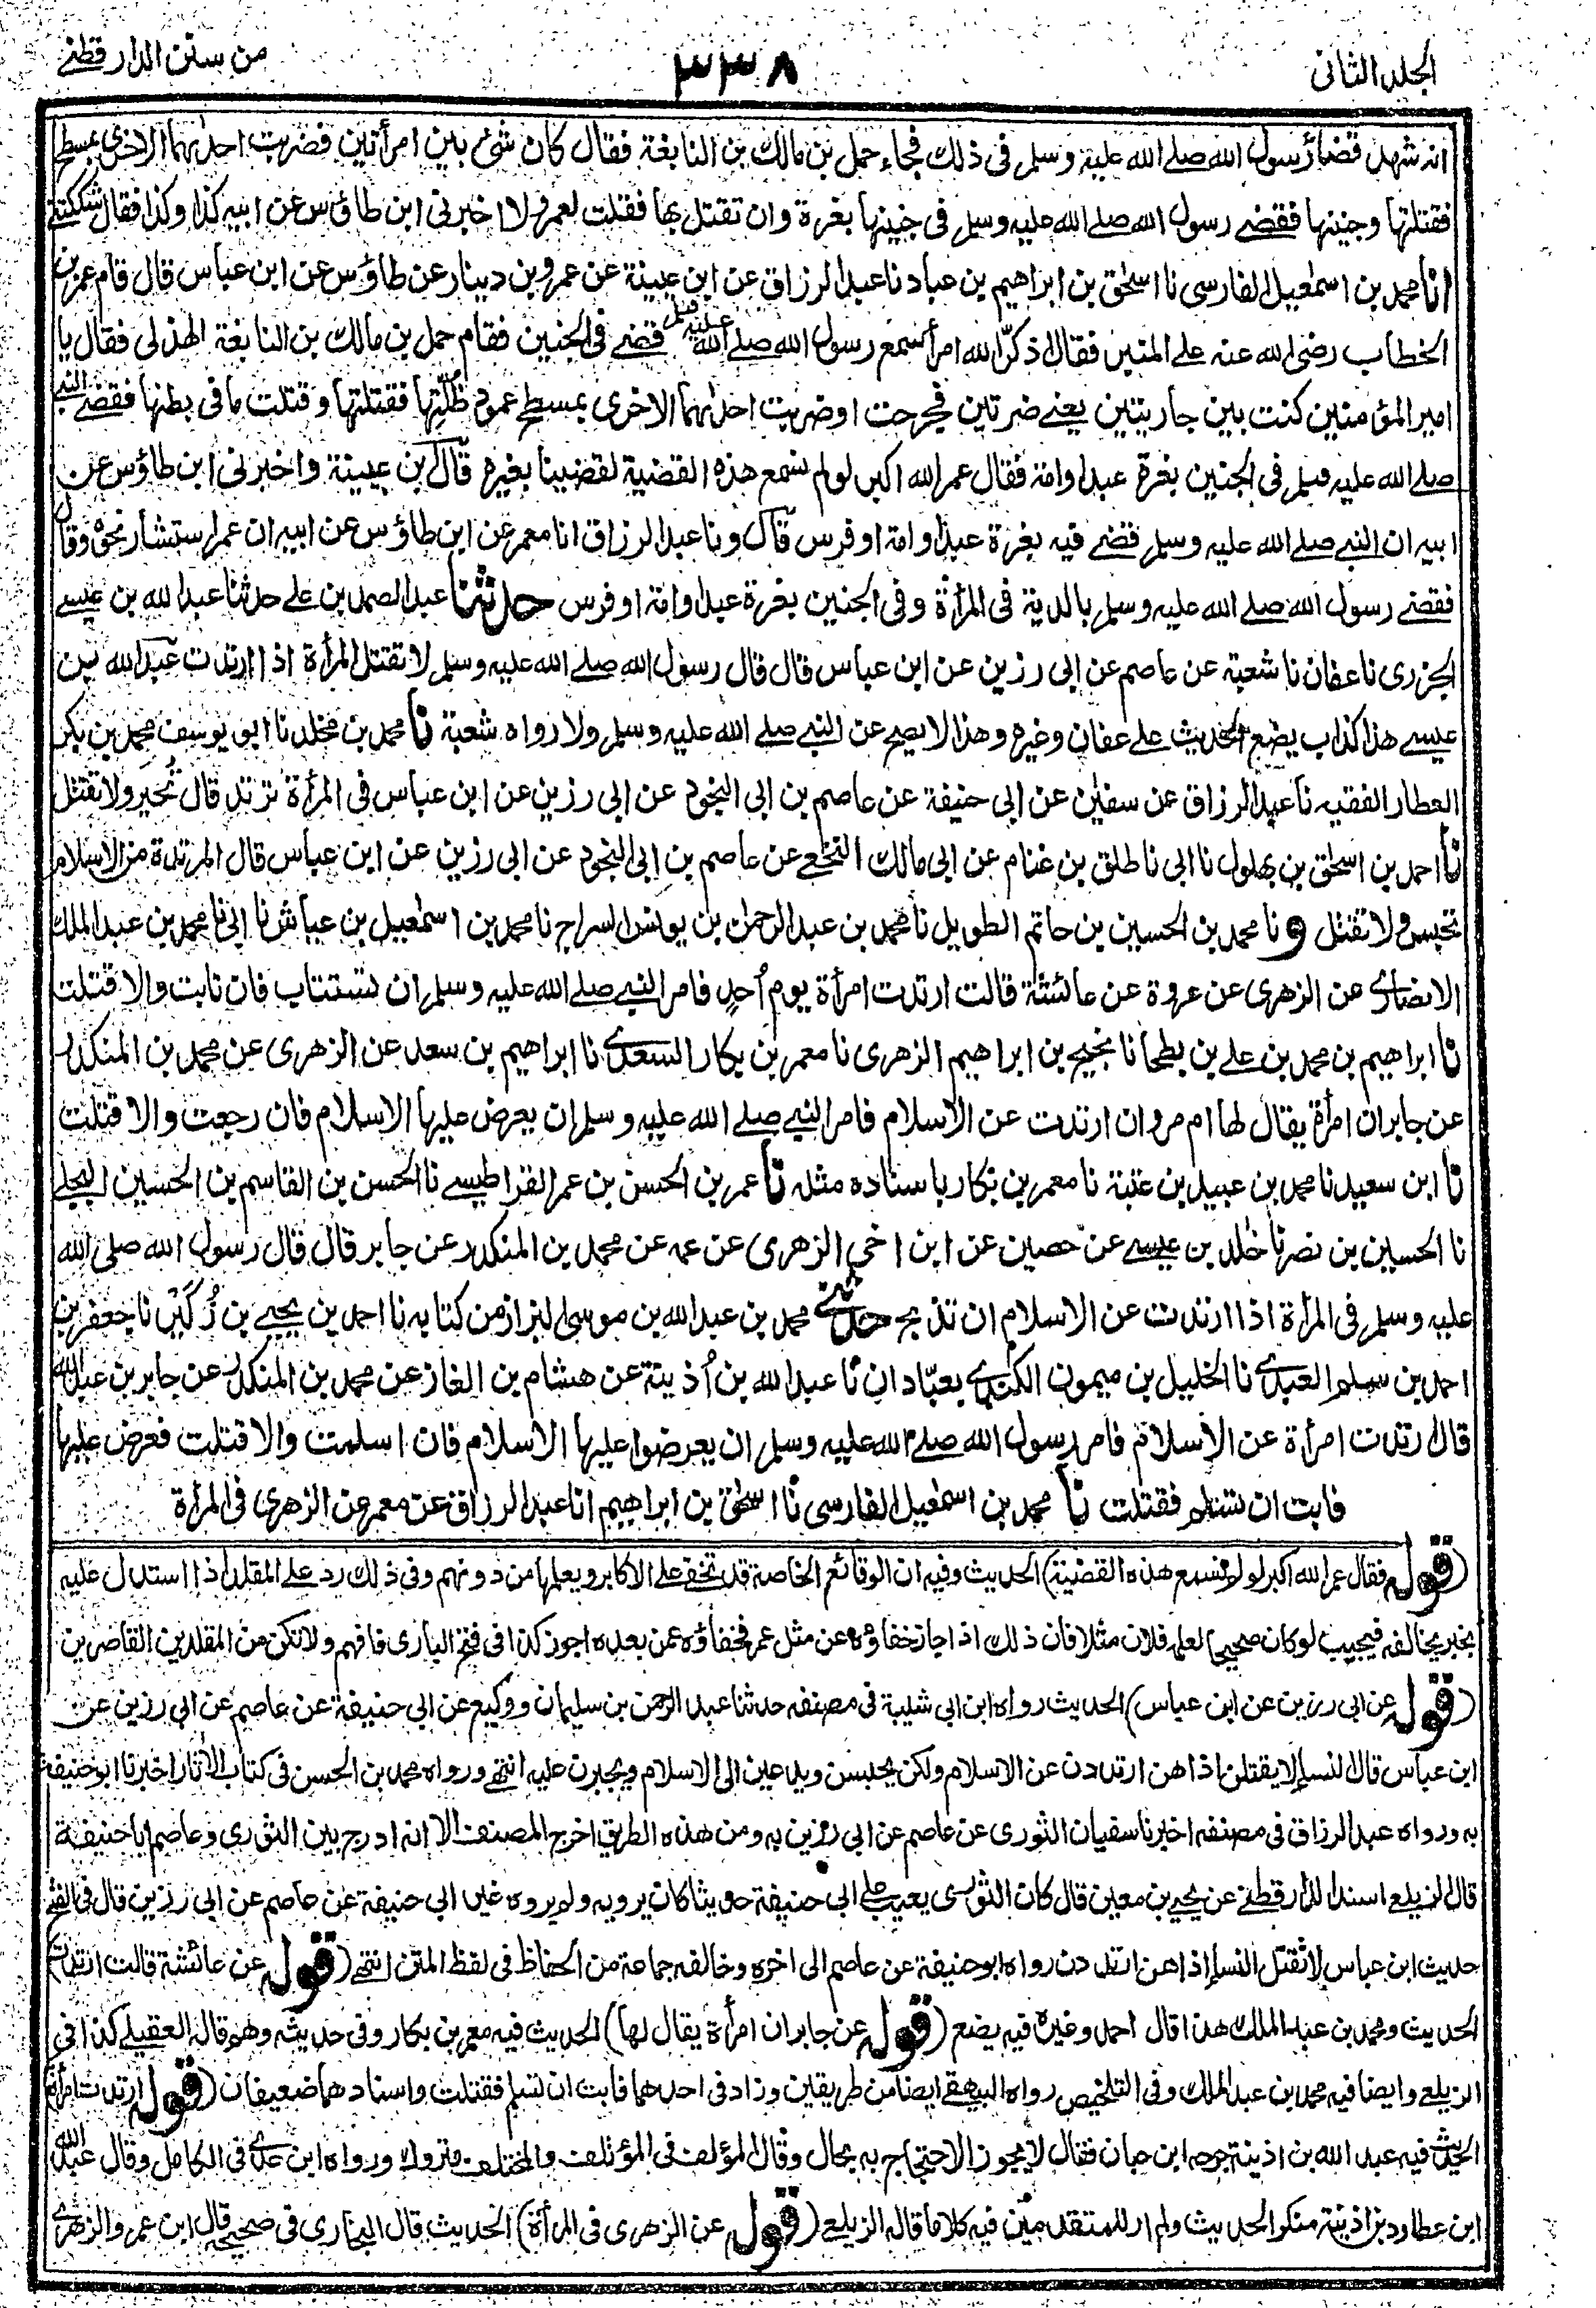 الجلد الثانی
٣٣٨
من سنن الدار قطنے
انه شهد قضاء رسول الله صلے الله علیه وسلم فی ذلك فجاء حمل بن مالك بن النابغة فقال كان شئ بین امرأتین فضربت احدٰىهما الاخرى بمسطح
فقتلتها وجنینها فقضے رسول الله صلے الله علیه وسلم فی جنینها بغرة وان تقتل بها فقلت لعمرو لا اخبرنی ابن طاؤس عن ابیه كذا وكذا فقال شككتنے
انا محمد بن اسمٰعیل الفارسی نا اسحٰق بن ابراهیم بن عباد نا عبد الرزاق عن ابن عیینة عن عمرو بن دینار عن طاؤس عن ابن عباس قال قام عمر بن
الخطاب رضی الله عنه علے المنبر فقال اذكّر الله امرأ سمع رسول الله صلے الله علیه وسلم قضے فی الجنین فقام حمل بن مالك بن النابغة الهذلی فقال یا
امیر المؤمنین كنت بین جاریتین یعنے ضرتین فجرحت او ضربت احدٰىهما الاخرى بمسطح عمود ظلّتها فقتلتها وقتلت ما فی بطنها فقضے النبے
صلے الله علیه وسلم فی الجنین بغرة عبد او امة فقال عمر الله اكبر لو لم نسمع هذه القضیة لقضینا بغیره قال ابن عیینة واخبرنی ابن طاؤس عن
ابیه ان النبے صلے الله علیه وسلم قضے فیه بغرة عبد او امة او فرس قال ونا عبد الرزاق انا معمر عن ابن طاؤس عن ابیه ان عمر استشار نحوه وقال
فقضے رسول الله صلے الله علیه وسلم بالدیة فی المرأة وفی الجنین بغرة عبد او امة او فرس حدثنا عبد الصمد بن علے حدثنا عبد الله بن عیسے
الجزری نا عفان نا شعبة عن عاصم عن ابی رزین عن ابن عباس قال قال رسول الله صلے الله علیه وسلم لا تقتل المرأة اذا ارتدت عبد الله بن
عیسے هذا كذاب یضع الحدیث علے عفان وغیره وهذا لا یصح عن النبے صلے الله علیه وسلم ولا رواه شعبة نا محمد بن مخلد نا ابو یوسف محمد بن بكر
العطار الفقیه نا عبد الرزاق عن سفیٰن عن ابی حنیفة عن عاصم بن ابی النجود عن ابی رزین عن ابن عباس فی المرأة ترتد قال تُجبر ولا تقتل
نا احمد بن اسحٰق بن بهلول نا ابی نا طلق بن غنام عن ابی مالك النخعے عن عاصم بن ابی النجود عن ابی رزین عن ابن عباس قال المرتدة من الاسلام
تحبس ولا تقتل و نا محمد بن الحسین بن حاتم الطویل نا محمد بن عبد الرحمٰن بن یونس السراج نا محمد بن اسمٰعیل بن عیاش نا ابی نا محمد بن عبد الملك
الانصارے عن الزهری عن عروة عن عائشة قالت ارتدت امرأة یوم اُحدٍ فامر النبے صلے الله علیه وسلم ان تستتاب فان تابت والا قتلت
نا ابراهیم بن محمد بن علے بن بطحا نا نجیح بن ابراهیم الزهری نا معمر بن بكار السعدے نا ابراهیم بن سعد عن الزهری عن محمد بن المنكدر
عن جابر ان امرأة یقال لها ام مروان ارتدت عن الاسلام فامر النبے صلے الله علیه وسلم ان یعرض علیها الاسلام فان رجعت والا قتلت
نا ابن سعید نا محمد بن عبید بن عتبة نا معمر بن بكار باسناده مثله نا عمر بن الحسن بن عمر القراطیسے نا الحسن بن القاسم بن الحسین البجلے
نا الحسین بن نصر نا خٰلد بن عیسے عن حصین عن ابن اخی الزهری عن عمه عن محمد بن المنكدر عن جابر قال قال رسول الله صلی الله
علیه وسلم فی المرأة اذا ارتدت عن الاسلام ان تذبح حدثنے محمد بن عبد الله بن موسی البزاز من كتابه نا احمد بن یحییٰ بن زُكَیْر نا جعفر بن
احمد بن سلم العبدے نا الخلیل بن میمون الكندے بعبّادان نا عبد الله بن اُذینة عن هشام بن الغاز عن محمد بن المنكدر عن جابر بن عبد الله
قال ارتدت امرأة عن الاسلام فامر رسول الله صلے الله علیه وسلم ان یعرضوا علیها الاسلام فان اسلمت والا قتلت فعرض علیها
فابت ان تسلم فقتلت نا محمد بن اسمٰعیل الفارسی نا اسحٰق بن ابراهیم انا عبد الرزاق عن معمر عن الزهری فی المرأة
(قوله فقال عمر الله اكبر لو لم نسمع هذه القضیة) الحدیث وفیه ان الوقائع الخاصة قد تخفے علے الاكابر ویعلمها من دونهم وفی ذلك رد علے المقلد اذا استدل علیه
بخبر یخالفه فیجیب لو كان صحیحا لعلمه فلان مثلا فان ذلك اذا جاز خفاؤه عن مثل عمر فخفاؤه عمن بعده اجوز كذا فی فتح الباری فافهم ولا تكن من المقلدین القاصرین
(قوله عن ابی رزین عن ابن عباس) الحدیث رواه ابن ابی شیبة فی مصنفه حدثنا عبد الرحمن بن سلیمان ووكیع عن ابی حنیفة عن عاصم عن ابی رزین عن
ابن عباس قال النساء لا یقتلن اذا هن ارتددن عن الاسلام ولكن یحبسن ویدعین الی الاسلام ویجبرن علیه انتهے ورواه محمد بن الحسن فی كتاب الآثار اخبرنا ابو حنیفة
به ورواه عبد الرزاق فی مصنفه اخبرنا سفیان الثوری عن عاصم عن ابی رزین به ومن هذه الطریق اخرج المصنف الا انه ادرج بین الثوری وعاصم ابا حنیفة
قال الزیلعے اسند الدار قطنے عن یحیے بن معین قال كان الثوری یعیب علے ابی حنیفة حدیثا كان یرویه ولم یروه غیر ابی حنیفة عن عاصم عن ابی رزین قال فی الفتح
حدیث ابن عباس لا تقتل النساء اذا هن ارتددن رواه ابو حنیفة عن عاصم الی اخره وخالفه جماعة من الحفاظ فی لفظ المتن انتهے (قوله عن عائشة قالت ارتدت)
الحدیث ومحمد بن عبد الملك هذا قال احمد وغیره فیه یضع (قوله عن جابر ان امرأة یقال لها) الحدیث فیه معمر بن بكار وفی حدیثه وهم قاله العقیلے كذا فی
الزیلعے وایضا فیه محمد بن عبد الملك وفی التلخیص رواه البیهقے ایضا من طریقین وزاد فی احدهما فابت ان تسلم فقتلت واسنادهما ضعیفان (قوله ارتدت امرأة)
الحدیث فیه عبد الله بن اذینة جرحه ابن حبان فقال لا یجوز الاحتجاج به بحال وقال المؤلف فی المؤتلف والمختلف متروك ورواه ابن عدے فی الكامل وقال عبد الله
ابن عطارد بن اذینة منكر الحدیث ولم ار للمتقدمین فیه كلاما قاله الزیلعے (قوله عن الزهری فی المرأة) الحدیث قال البخاری فی صحیحه قال ابن عمر والزهرے